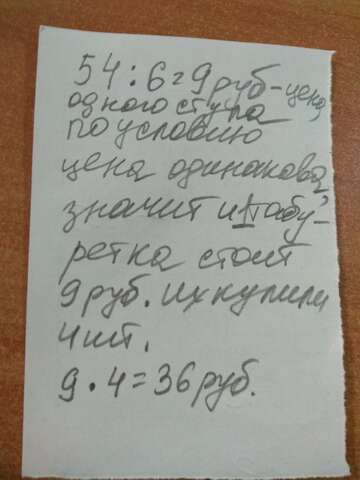 54:6=9руб-цена
одного стула
по условию
цена одинакова,
значит и 1табу-
ретка стоит
9руб. их купили
4шт.
9·4=36руб.